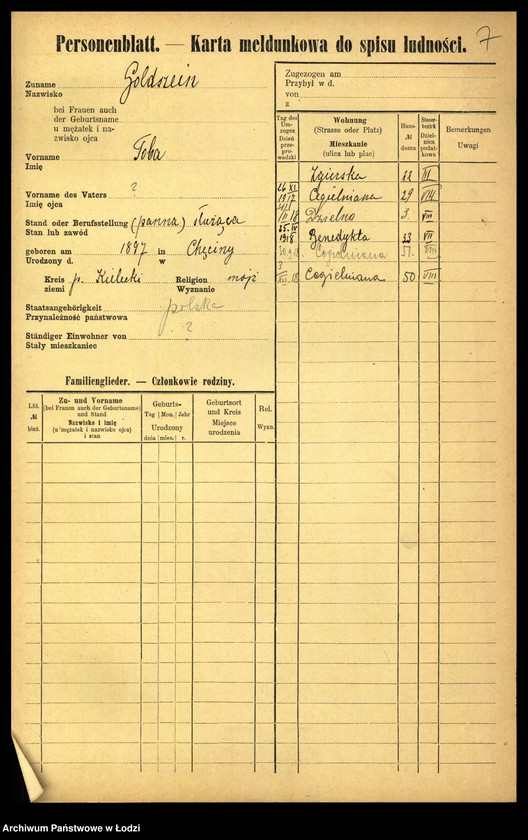 Personenblatt. — Karta meldunkowa do spisu ludności.
7
Zuname
Nazwisko
Goldszein
bei Frauen auch
der Geburtsname
u mężatek i na-
zwisko ojca
Vorname
Imię
Toba
Vorname des Vaters
Imię ojca
?
Stand oder Berufsstellung (panna) służąca
Stan lub zawód
geboren am 1897 in Chęciny
Urodzony d. w
Kreis p. Kielecki Religion mojż
ziemi Wyznanie
Staatsangehörigkeit polska
Przynależność państwowa
Ständiger Einwohner von ?
Stały mieszkaniec
Zugezogen am
Przybył w d.
von
z
Tag des Um-zuges Dzień prze-prowadzki
Wohnung (Strasse oder Platz) Mieszkanie (ulica lub plac)
Haus- № domu
Steuer-bezirk Dziel-nica podat-kowa
Bemerkungen Uwagi
Zgierska 22 III
26 XI 1917 Cegielniana 29 VIII
II 18 Dzielna 9. VIII
25. IV 1918 Benedykta 33 VII
Cegielniana 51. VIII
XII. 18 Cegielniana 50 VIII
Familienglieder. — Członkowie rodziny.
Lfd. № bież.
Zu- und Vorname (bei Frauen auch der Geburtsname) und Stand Nazwisko i imię (u mężatek i nazwisko ojca) i stan
Geburts- Tag Mon. Jahr Urodzony dnia mies. r.
Geburtsort und Kreis Miejsce urodzenia
Rel. Wyzn.
Archiwum Państwowe w Łodzi